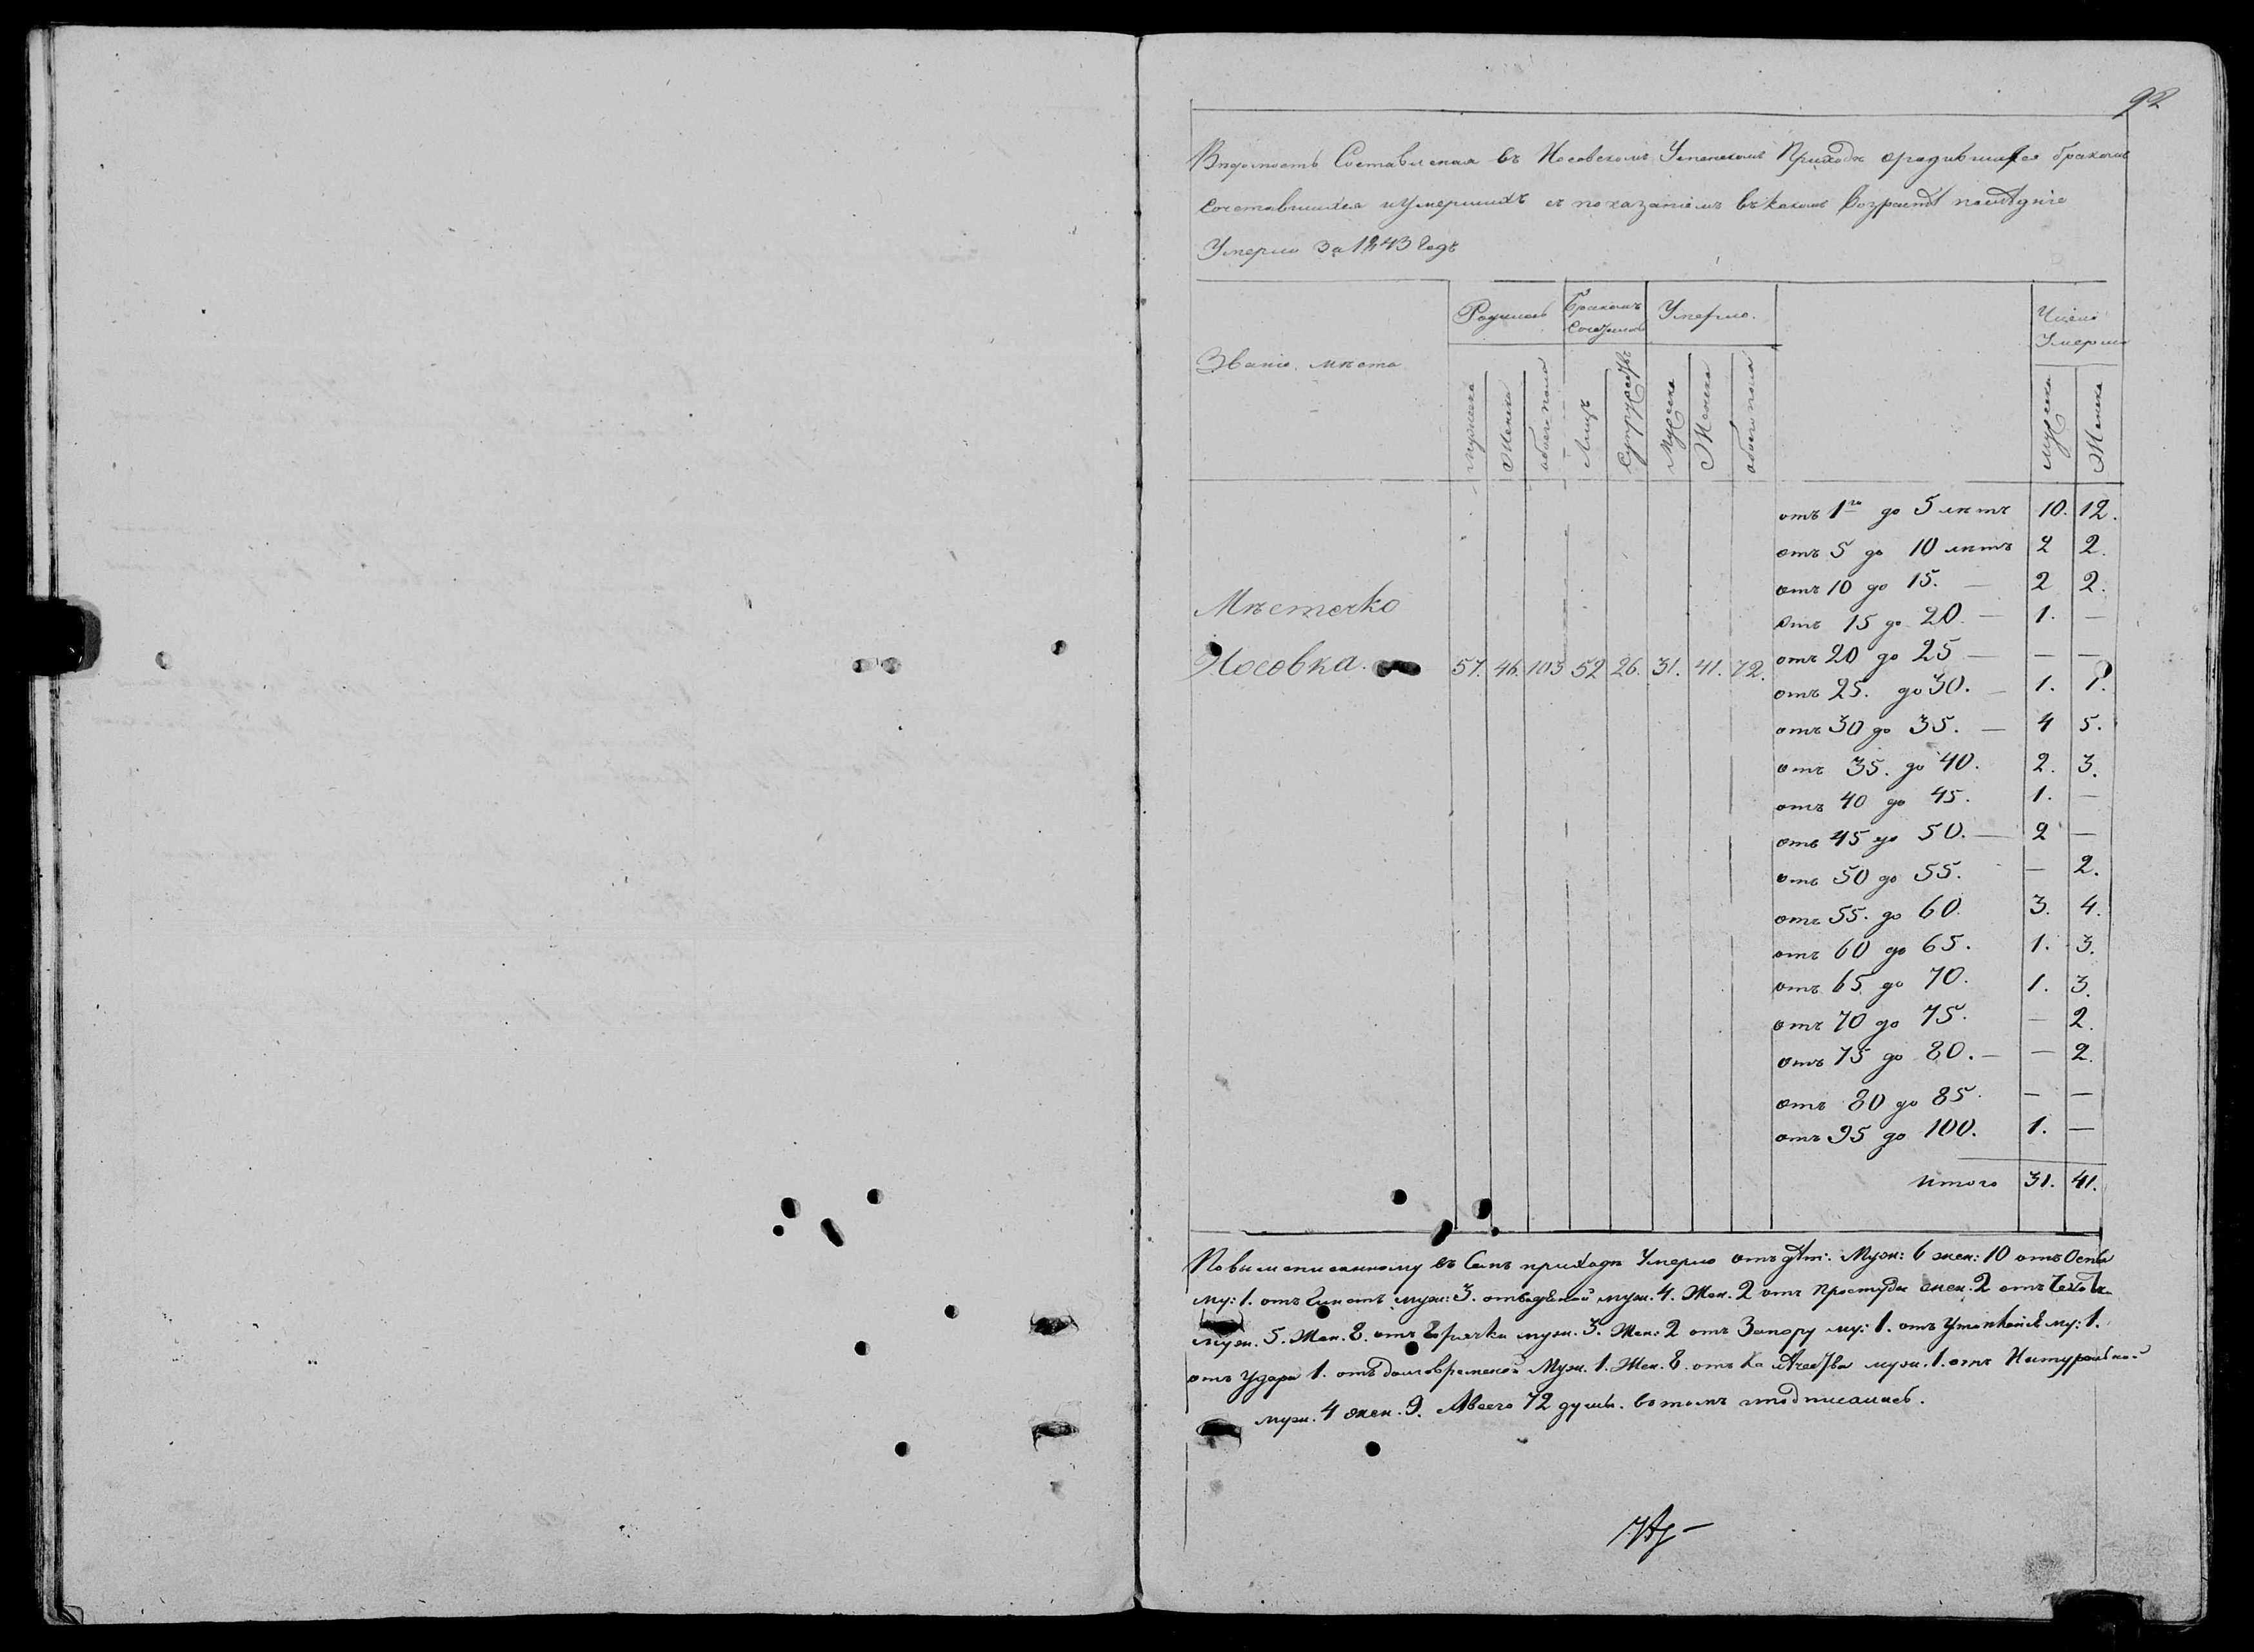 92
Вѣдомость Составленая въ Носовскомъ Успенскомъ Приходѣ ородившихся бракомъ
Сочетавшихся иУмершихъ съ показаніемъ въкакомъ Возрастѣ послѣдніе
Умерли За 1843 Годъ
Званіе мѣста
Родилось
Бракомъ Сочетались
Умерло.
Число Умерши
Мужеска
Женска
обоего пола
Лицъ
Супружествъ
Мужеска
Женска
обоего пола
Мужеска
Женска
отъ 1го до 5 лѣтъ 10. 12.
отъ 5 до 10 лѣтъ 2 2.
отъ 10 до 15. — 2 2.
отъ 15 до 20. — 1. —
отъ 20 до 25 — — —
отъ 25. до 30. — 1. 1.
отъ 30 до 35. — 4 5.
отъ 35. до 40. 2. 3.
отъ 40 до 45. 1. —
отъ 45 до 50. — 2 —
отъ 50 до 55. — 2.
отъ 55. до 60. 3. 4.
отъ 60 до 65. 1. 3.
отъ 65 до 70. 1. 3.
отъ 70 до 75. — 2.
отъ 75 до 80. — — 2.
отъ 80 до 85. — —
отъ 95 до 100. 1. —
Итого 31. 41.
Мѣстечко
Носовка. 57. 46. 103 52 26. 31. 41. 72.
Повышеписанному въ Семъ приходѣ Умерло отъ Муж: 6 жен: 10 отъ Оспы
му: 1. отъ муж: 3. муж. 4. Жен. 2 отъ простуды жен. 2 отъ
муж. 5. Жен. 8. отъ Горячки муж. 3. Жен: 2 отъ Запору му: 1. отъ му: 1.
отъ Удара 1. отъ долговременой Муж. 1. Жен. 8. отъ муж. 1. отъ Натуральной
муж. 4 жен. 9. Авсего 72 душы. вотомъ иподписались.